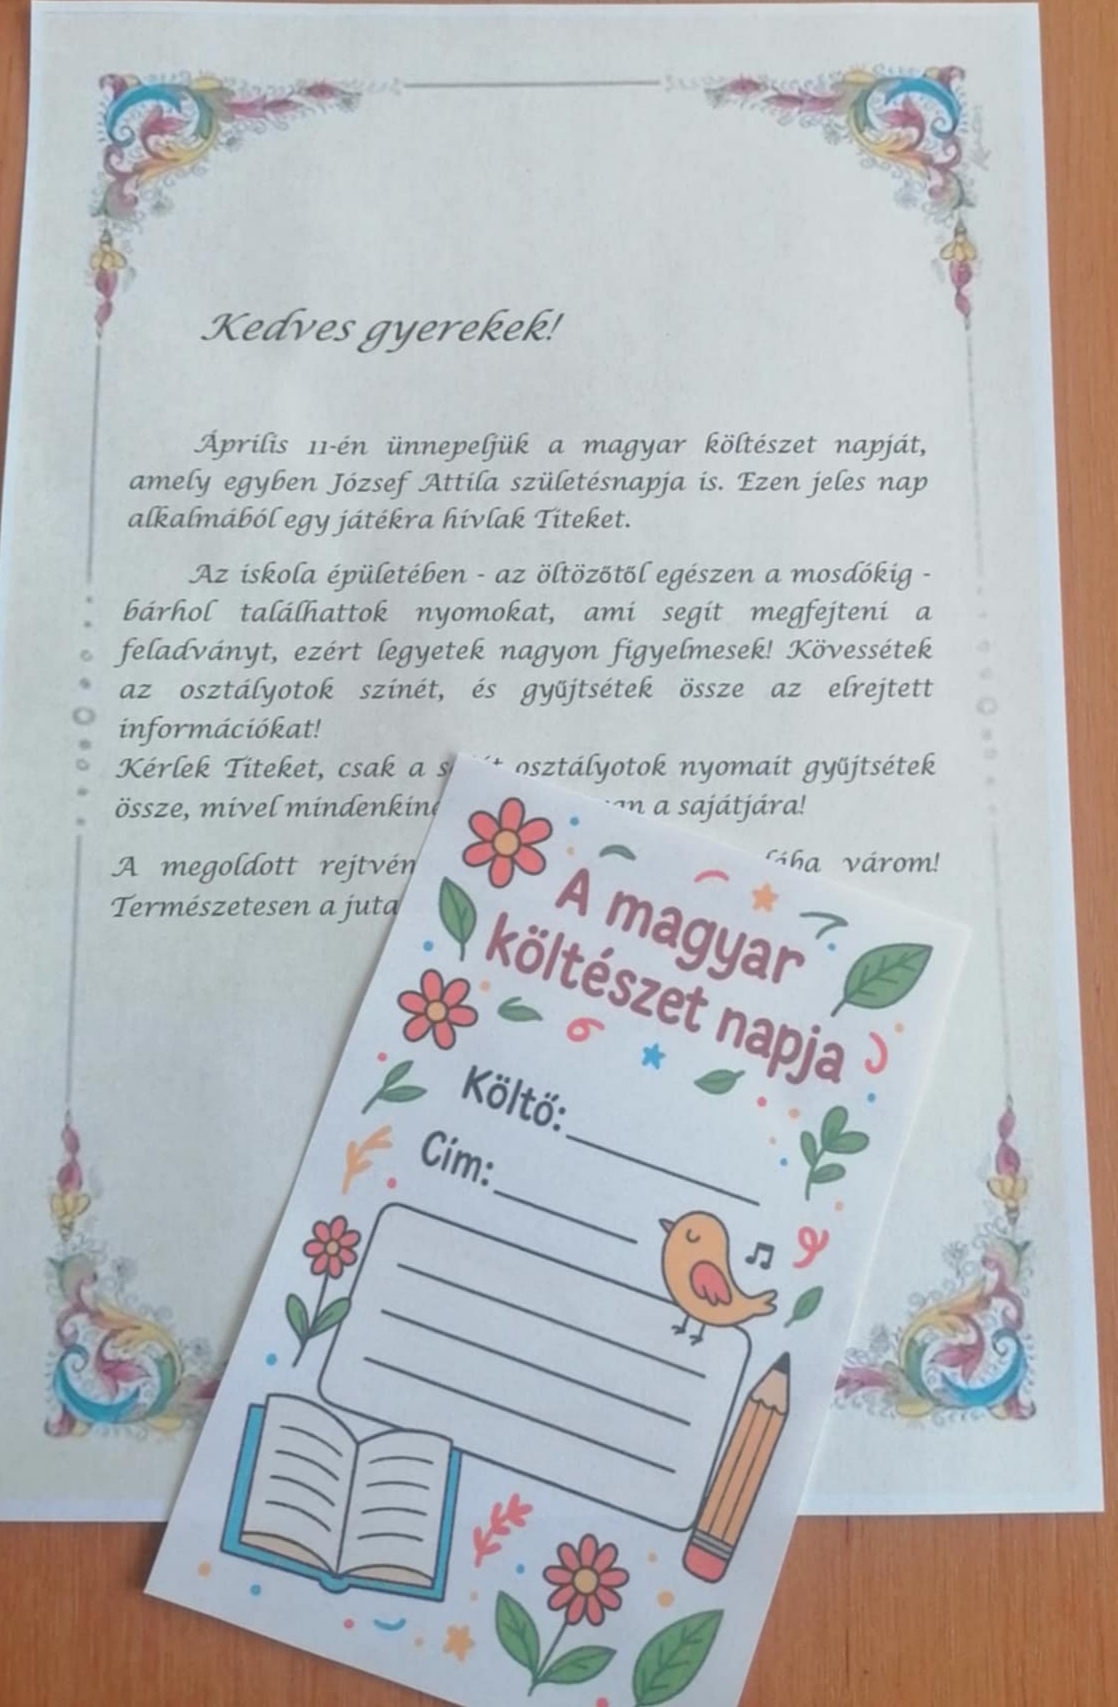 Kedves gyerekek!
Április 11-én ünnepeljük a magyar költészet napját,
amely egyben József Attila születésnapja is. Ezen jeles nap
alkalmából egy játékra hívlak Titeket.
Az iskola épületében - az öltözőtől egészen a mosdókig -
bárhol találhattok nyomokat, ami segít megfejteni a
feladványt, ezért legyetek nagyon figyelmesek! Kövessétek
az osztályotok színét, és gyűjtsétek össze az elrejtett
információkat!
Kérlek Titeket, csak a osztályotok nyomait gyűjtsétek
össze, mivel a sajátjára!
A megoldott várom!
Természetesen a
A magyar
költészet napja
Költő:
Cím: